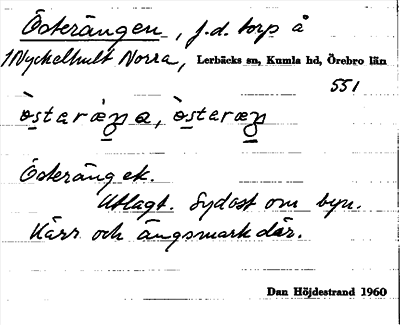 Österängen, f.d. torp å
1 Nyckelhult Norra, Lerbäcks sn, Kumla hd, Örebro län
551
Österäng ek.
Utlagt. Sydost om byn.
Kärr och ängsmark där.
Dan Höjdestrand 1960